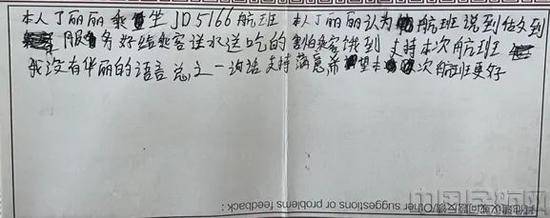 本人丁丽丽乘坐JD5166航班 本人丁丽丽认为航班说到做到
服务好给乘客送水送吃的害怕乘客饿到 支持本次航班
我没有华丽的语言总之一句话支持满意希望本次航班更好
其他建议或问题反馈/Other suggestions or problems feedback:
中国民航网